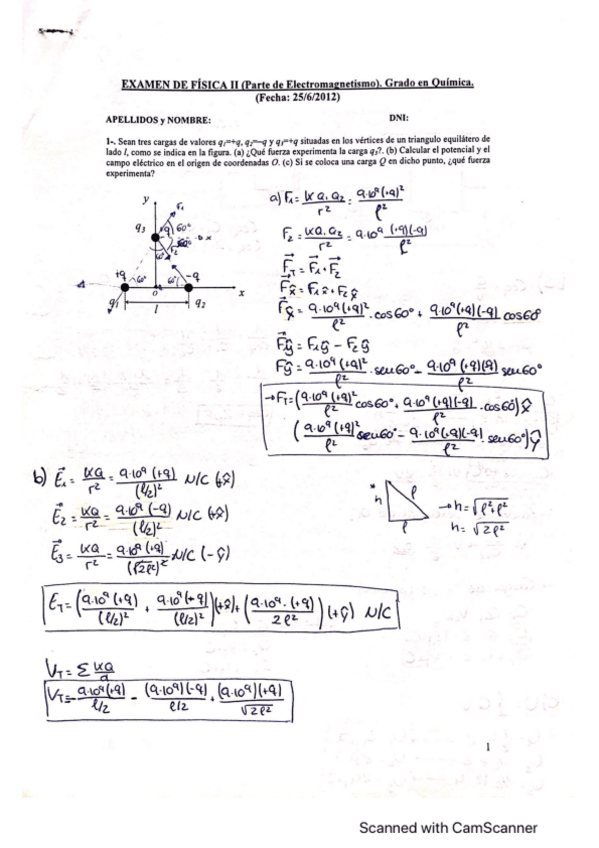 EXAMEN DE FÍSICA II (Parte de Electromagnetismo). Grado en Química.
(Fecha: 25/6/2012)
APELLIDOS y NOMBRE: DNI:
1-. Sean tres cargas de valores q₁=+q, q₂=-q y q₃=+q situadas en los vértices de un triangulo equilátero de
lado l, como se indica en la figura. (a) ¿Qué fuerza experimenta la carga q₃?. (b) Calcular el potencial y el
campo eléctrico en el origen de coordenadas O. (c) Si se coloca una carga Q en dicho punto, ¿qué fuerza
experimenta?
y
F₁
q₃ +q 60°
F₂
60°
+q 60° 60° -q
q₁ o q₂ x
l
a) F₁ = KQ₁Q₂/r² = 9·10⁹(+q)²/l²
F₂ = KQ₁Q₃/r² = 9·10⁹ (+q)(-q)/l²
F_T = F₁ + F₂
Fx̂ = F₁x̂ + F₂x̂
Fx̂ = 9·10⁹(+q)²/l² · cos60° + 9·10⁹(+q)(-q)/l² cos60°
Fŷ = F₁ŷ - F₂ŷ
Fŷ = 9·10⁹(+q)²/l² · sen60° - 9·10⁹(+q)(q)/l² sen60°
→F_T = (9·10⁹(+q)²/l² cos60° + 9·10⁹(+q)(-q)/l² · cos60)x̂
(9·10⁹(+q)²/l² sen60° - 9·10⁹(+q)(-q)/l² sen60°)ŷ
b) E₁ = KQ/r² = 9·10⁹(+q)/(l/2)² N/C (+x̂)
E₂ = KQ/r² = 9·10⁹(-q)/(l/2)² N/C (+x̂)
E₃ = KQ/r² = 9·10⁹(+q)/(√2l²)² N/C (-ŷ)
h l l
→h = √l²+l²
h = √2l²
E_T = (9·10⁹(+q)/(l/2)² + 9·10⁹(+q)/(l/2)²)(+x̂) + (9·10⁹·(+q)/2l²)(+ŷ) N/C
V_T = Σ KQ/d
V_T = 9·10⁹(+q)/l/2 - (9·10⁹)(-q)/l/2 + (9·10⁹)(+q)/√2l²
1
Scanned with CamScanner